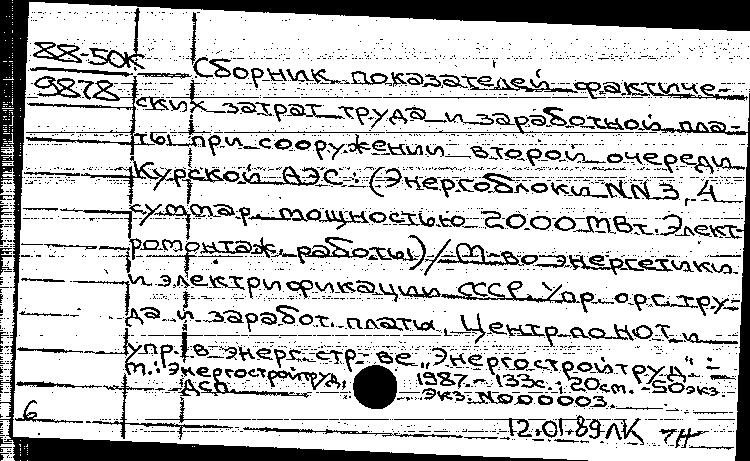 88-50К
9878
Сборник показателей фактиче-
ских затрат труда и заработной пла-
ты при сооружении второй очереди
Курской АЭС: (Энергоблоки NN 3, 4
суммар. мощностью 2000 МВт. Элект-
ромонтаж. работы) / М-во энергетики
и электрификации СССР, Упр. орг. тру-
да и заработ. платы, Центр по НОТ и
упр. в энерг. стр-ве „Энергостройтруд“ -
М.: Энергостройтруд, 1987. - 133с.; 20см. - 50экз.
ДСП. Экз. N000003.
6
12.01.89 ЛК